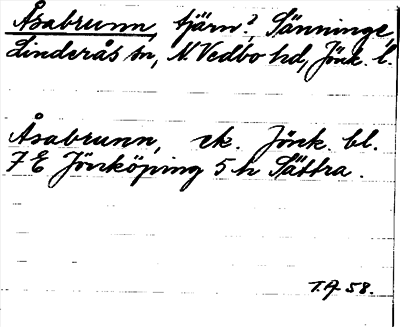 Åsabrunn, tjärn?, Sänninge,
Linderås sn, N. Vedbo hd, Jönk. l.
Åsabrunn, ek. Jönk. bl.
7 E Jönköping 5 h Sättra.
T.A. 58.